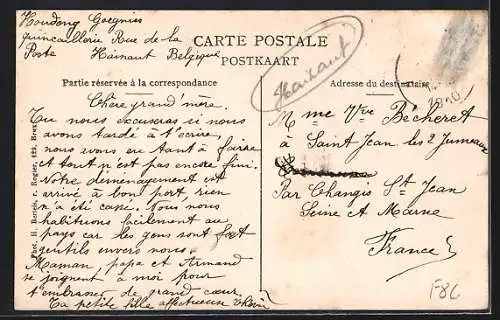 Houdeng Goegnies
quincaillerie Rue de la
Poste Hainaut Belgique
CARTE POSTALE
POSTKAART
Hainaut
Partie réservée à la correspondance
Adresse du destinataire
1910
Chère grand'mère.
Tu nous excuseras si nous
avons tardé à t'ecrire,
nous avons eu tant à faire
et tout n'est pas encore fini.
Notre déménagement est
arrivé à bon port rien
n'a été cassé. Nous nous
habituons facilement au
pays car les gens sont fort
gentils envers nous.
Maman, papa et Armand
se joignent à moi pour
t'embrasser de grand cœur.
Ta petite fille affectueuse
Mme Vve Bécheret
à Saint Jean les 2 Jumeaux
Par Changis St Jean
Seine et Marne
France
F86
Phot. H. Bertels, r. Rogier, 122, Brux.